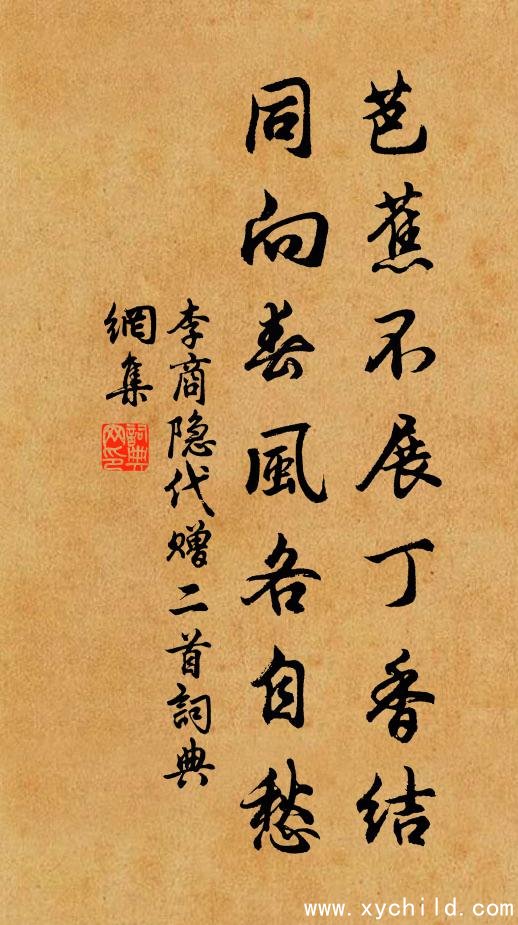 芭蕉不展丁香结
同向春風各自愁
李商隐代赠二首詞典
網集
詞典
网印
www.xychild.com